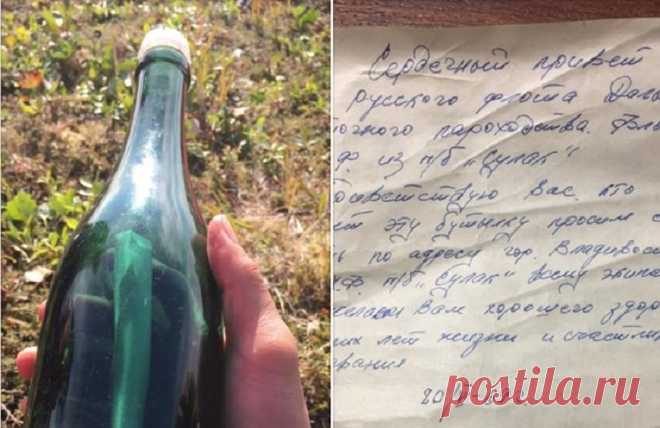 Сердечный привет
русского флота Даль
точного пароходства. Вл
Ф. из п/б „Сулак“
иветствую Вас кто
ет эту бутылку просим с
ь по адресу гор. Владивос
Ф. п/б „Сулак“ всему экипа
желаем Вам хорошего здор
их лет жизни и счастли
20
postila.ru